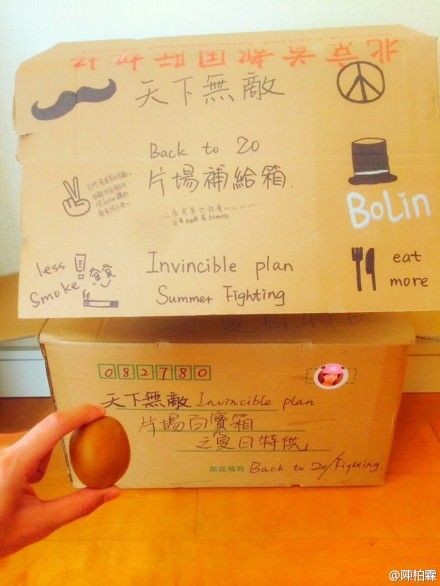 北京首都国际机场
天下無敵
Back to 20
片場補給箱
BoLin
less
smoke
Invincible plan
Summer Fighting
eat
more
082780
天下無敵 Invincible plan
片場百寶箱
之夏日特供」
邮政编码
Back to 20/Fighting
@陳柏霖